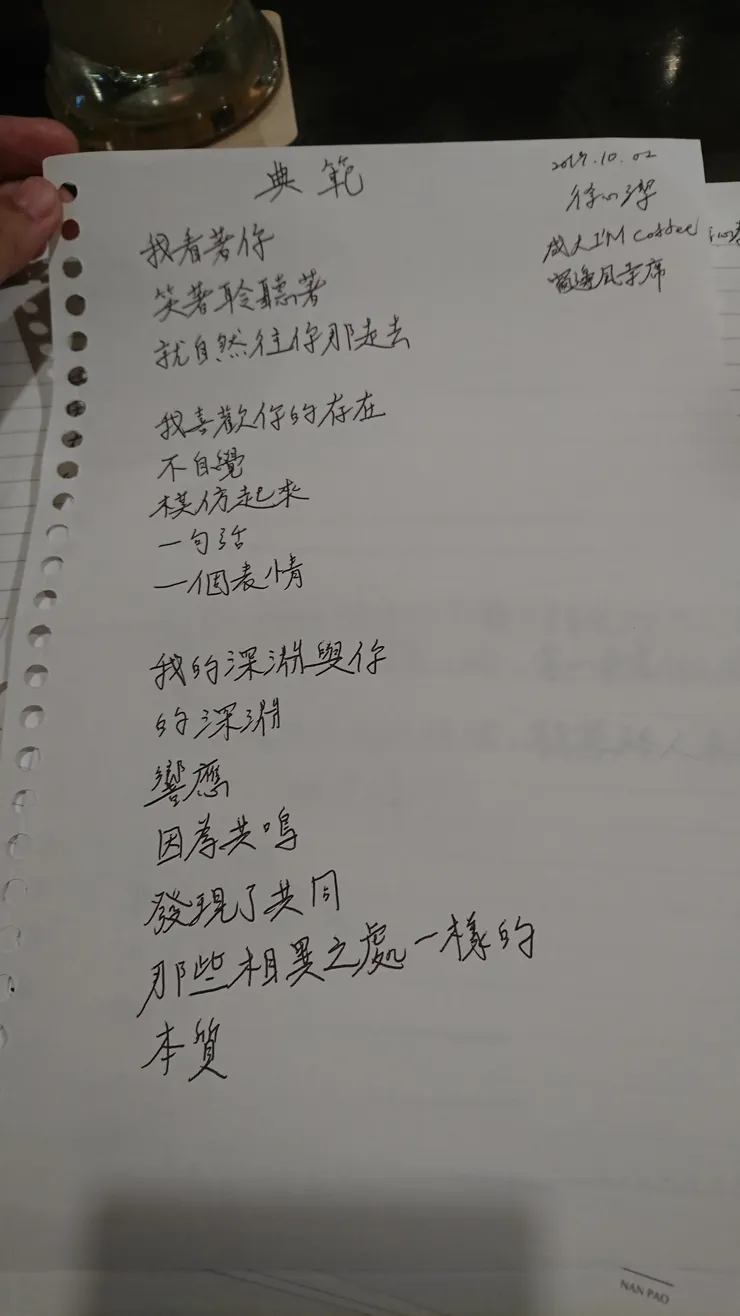 典範
2017.10.02
徐心潔
成大I'M coffee
窗邊風景席
我看著你
笑著聆聽著
就自然往你那走去
我喜歡你的存在
不自覺
模仿起來
一句話
一個表情
我的深淵與你
的深淵
響應
因為共鳴
發現了共同
那些相異之處一樣的
本質
NAN PAO